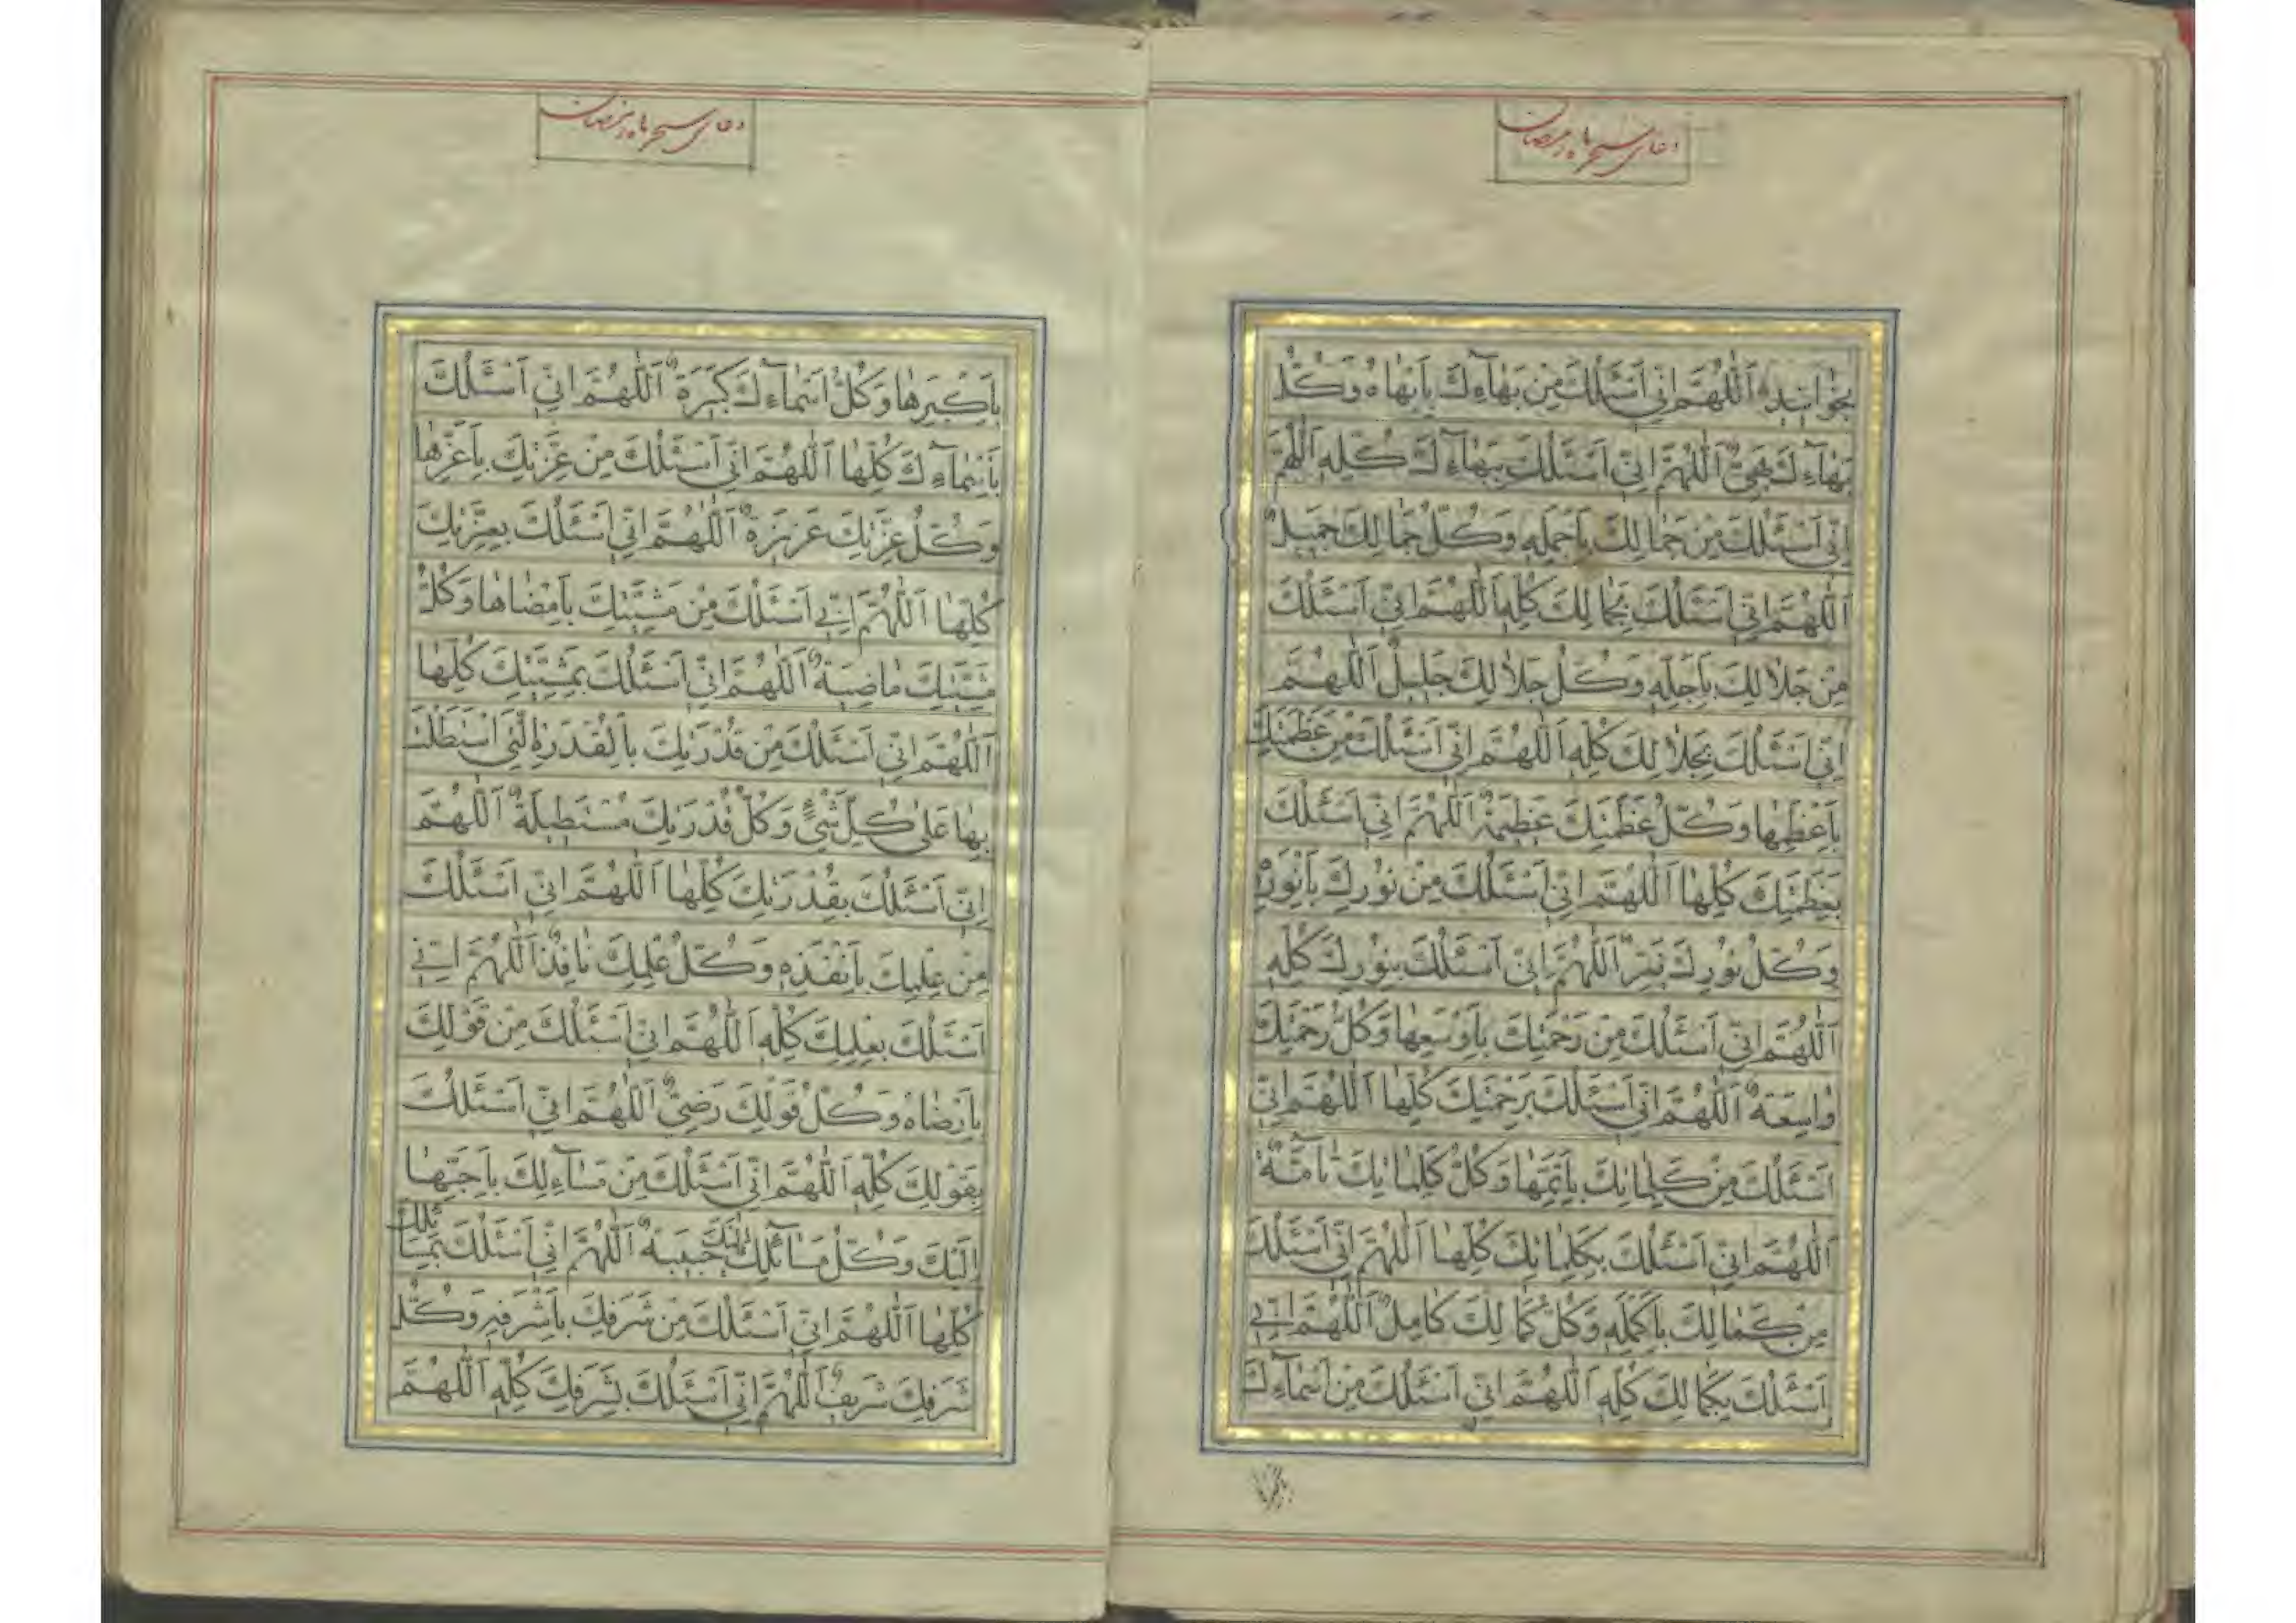 دعای سحر ماه رمضان
بخوانید اَللّٰهُمَّ اِنّی اَسْئَلُكَ مِنْ بَهٰآءِكَ بِاَبْهٰاهُ وَكُلُّ
بَهٰآءِكَ بَهِیٌّ اَللّٰهُمَّ اِنّی اَسْئَلُكَ بِبَهٰآءِكَ كُلِّهِ اَللّٰهُمَّ
اِنّی اَسْئَلُكَ مِنْ جَمٰالِكَ بِاَجْمَلِهِ وَكُلُّ جَمٰالِكَ جَمیلٌ
اَللّٰهُمَّ اِنّی اَسْئَلُكَ بِجَمٰالِكَ كُلِّهِ اَللّٰهُمَّ اِنّی اَسْئَلُكَ
مِنْ جَلاٰلِكَ بِاَجَلِّهِ وَكُلُّ جَلاٰلِكَ جَلیلٌ اَللّٰهُمَّ
اِنّی اَسْئَلُكَ بِجَلاٰلِكَ كُلِّهِ اَللّٰهُمَّ اِنّی اَسْئَلُكَ مِنْ عَظَمَتِكَ
بِاَعْظَمِهٰا وَكُلُّ عَظَمَتِكَ عَظیمَةٌ اَللّٰهُمَّ اِنّی اَسْئَلُكَ
بِعَظَمَتِكَ كُلِّهٰا اَللّٰهُمَّ اِنّی اَسْئَلُكَ مِنْ نُورِكَ بِاَنْوَرِهِ
وَكُلُّ نُورِكَ نَیِّرٌ اَللّٰهُمَّ اِنّی اَسْئَلُكَ بِنُورِكَ كُلِّهِ
اَللّٰهُمَّ اِنّی اَسْئَلُكَ مِنْ رَحْمَتِكَ بِاَوْسَعِهٰا وَكُلُّ رَحْمَتِكَ
وٰاسِعَةٌ اَللّٰهُمَّ اِنّی اَسْئَلُكَ بِرَحْمَتِكَ كُلِّهٰا اَللّٰهُمَّ اِنّی
اَسْئَلُكَ مِنْ كَلِمٰاتِكَ بِاَتَمِّهٰا وَكُلُّ كَلِمٰاتِكَ تٰآمَّةٌ
اَللّٰهُمَّ اِنّی اَسْئَلُكَ بِكَلِمٰاتِكَ كُلِّهٰا اَللّٰهُمَّ اِنّی اَسْئَلُكَ
مِنْ كَمٰالِكَ بِاَكْمَلِهِ وَكُلُّ كَمٰالِكَ كٰامِلٌ اَللّٰهُمَّ اِنّی
اَسْئَلُكَ بِكَمٰالِكَ كُلِّهِ اَللّٰهُمَّ اِنّی اَسْئَلُكَ مِنْ اَسْمٰآءِكَ
دعای سحر ماه رمضان
بِاَكْبَرِهٰا وَكُلُّ اَسْمٰآءِكَ كَبیرَةٌ اَللّٰهُمَّ اِنّی اَسْئَلُكَ
بِاَسْمٰآءِكَ كُلِّهٰا اَللّٰهُمَّ اِنّی اَسْئَلُكَ مِنْ عِزَّتِكَ بِاَعَزِّهٰا
وَكُلُّ عِزَّتِكَ عَزیزَةٌ اَللّٰهُمَّ اِنّی اَسْئَلُكَ بِعِزَّتِكَ
كُلِّهٰا اَللّٰهُمَّ اِنّی اَسْئَلُكَ مِنْ مَشِیَّتِكَ بِاَمْضٰاهٰا وَكُلُّ
مَشِیَّتِكَ مٰاضِیَةٌ اَللّٰهُمَّ اِنّی اَسْئَلُكَ بِمَشِیَّتِكَ كُلِّهٰا
اَللّٰهُمَّ اِنّی اَسْئَلُكَ مِنْ قُدْرَتِكَ بِالْقُدْرَةِ الَّتی اسْتَطَلْتَ
بِهٰا عَلیٰ كُلِّ شَیْئٍ وَكُلُّ قُدْرَتِكَ مُسْتَطیلَةٌ اَللّٰهُمَّ
اِنّی اَسْئَلُكَ بِقُدْرَتِكَ كُلِّهٰا اَللّٰهُمَّ اِنّی اَسْئَلُكَ
مِنْ عِلْمِكَ بِاَنْفَذِهِ وَكُلُّ عِلْمِكَ نٰافِذٌ اَللّٰهُمَّ اِنّی
اَسْئَلُكَ بِعِلْمِكَ كُلِّهِ اَللّٰهُمَّ اِنّی اَسْئَلُكَ مِنْ قَوْلِكَ
بِاَرْضٰاهُ وَكُلُّ قَوْلِكَ رَضِیٌّ اَللّٰهُمَّ اِنّی اَسْئَلُكَ
بِقَوْلِكَ كُلِّهِ اَللّٰهُمَّ اِنّی اَسْئَلُكَ مِنْ مَسٰآءِلِكَ بِاَحَبِّهٰا
اِلَیْكَ وَكُلُّ مَسٰآئِلِكَ اِلَیْكَ حَبیبَةٌ اَللّٰهُمَّ اِنّی اَسْئَلُكَ بِمَسٰآئِلِكَ
كُلِّهٰا اَللّٰهُمَّ اِنّی اَسْئَلُكَ مِنْ شَرَفِكَ بِاَشْرَفِهِ وَكُلُّ
شَرَفِكَ شَریفٌ اَللّٰهُمَّ اِنّی اَسْئَلُكَ بِشَرَفِكَ كُلِّهِ اَللّٰهُمَّ